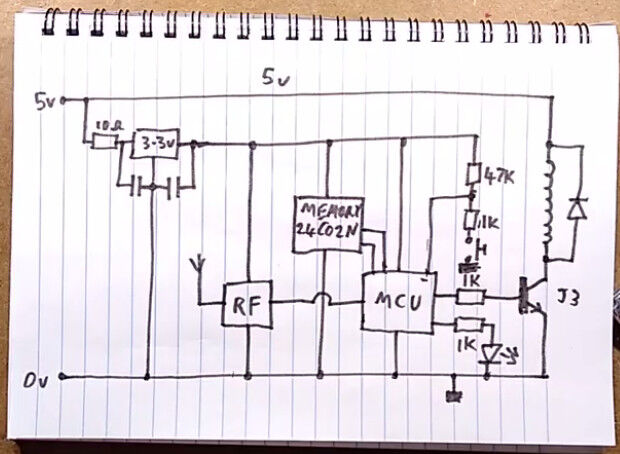 5v
5v
10Ω
3-3v
47K
MEMORY
24C02N
1K
RF
MCU
1K
J3
1K
0v